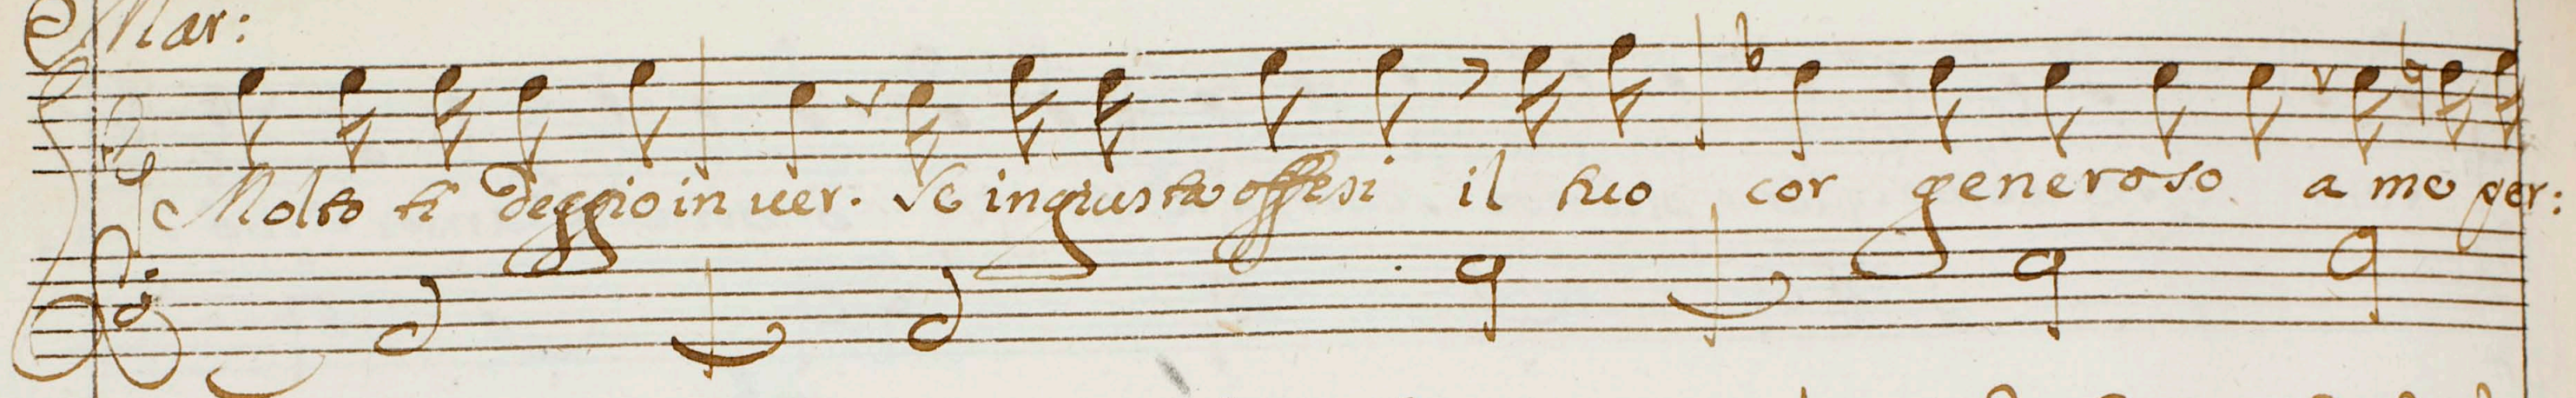 Mar:
Molto ti deggio in uer. Se ingiusta offesi il tuo cor generoso a me per: